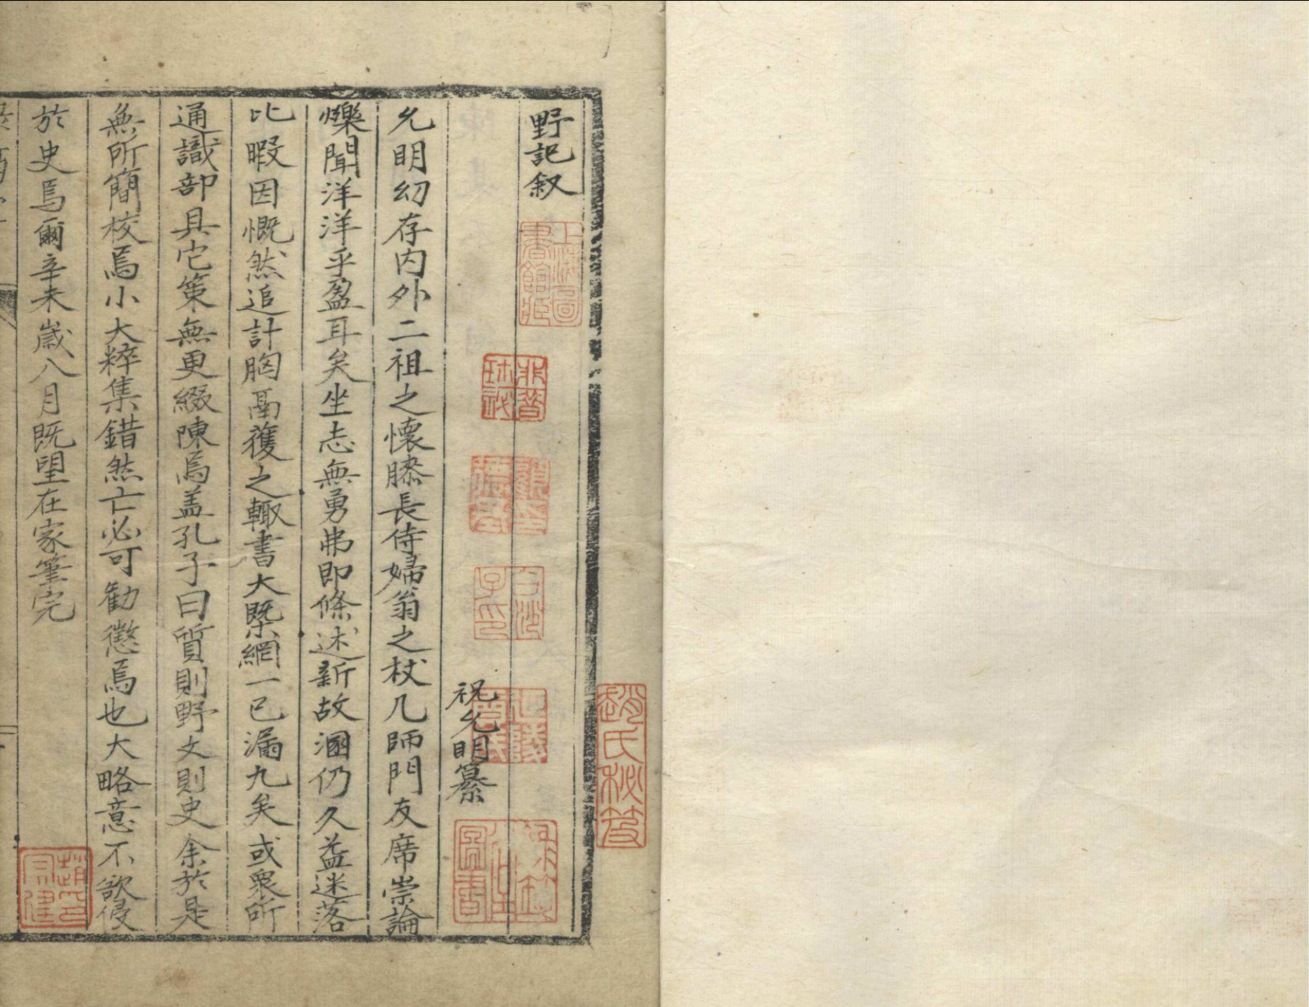 野記叙
祝允明纂
允明幼存内外二祖之懷膝長侍婦翁之杖几師門友席崇論
爍聞洋洋乎盈耳矣坐志無勇弗即條述新故溷仍久益迷落
比暇因慨然追計胸鬲獲之輙書大槩網一已漏九矣或衆所
通識部具它策無更綴陳焉盖孔子曰質則野文則史余於是
無所簡校焉小大粹集錯然亡必可勸懲焉也大略意不欲侵
於史焉爾辛未歳八月既望在家筆完
上海圖書館藏
趙氏秘笈